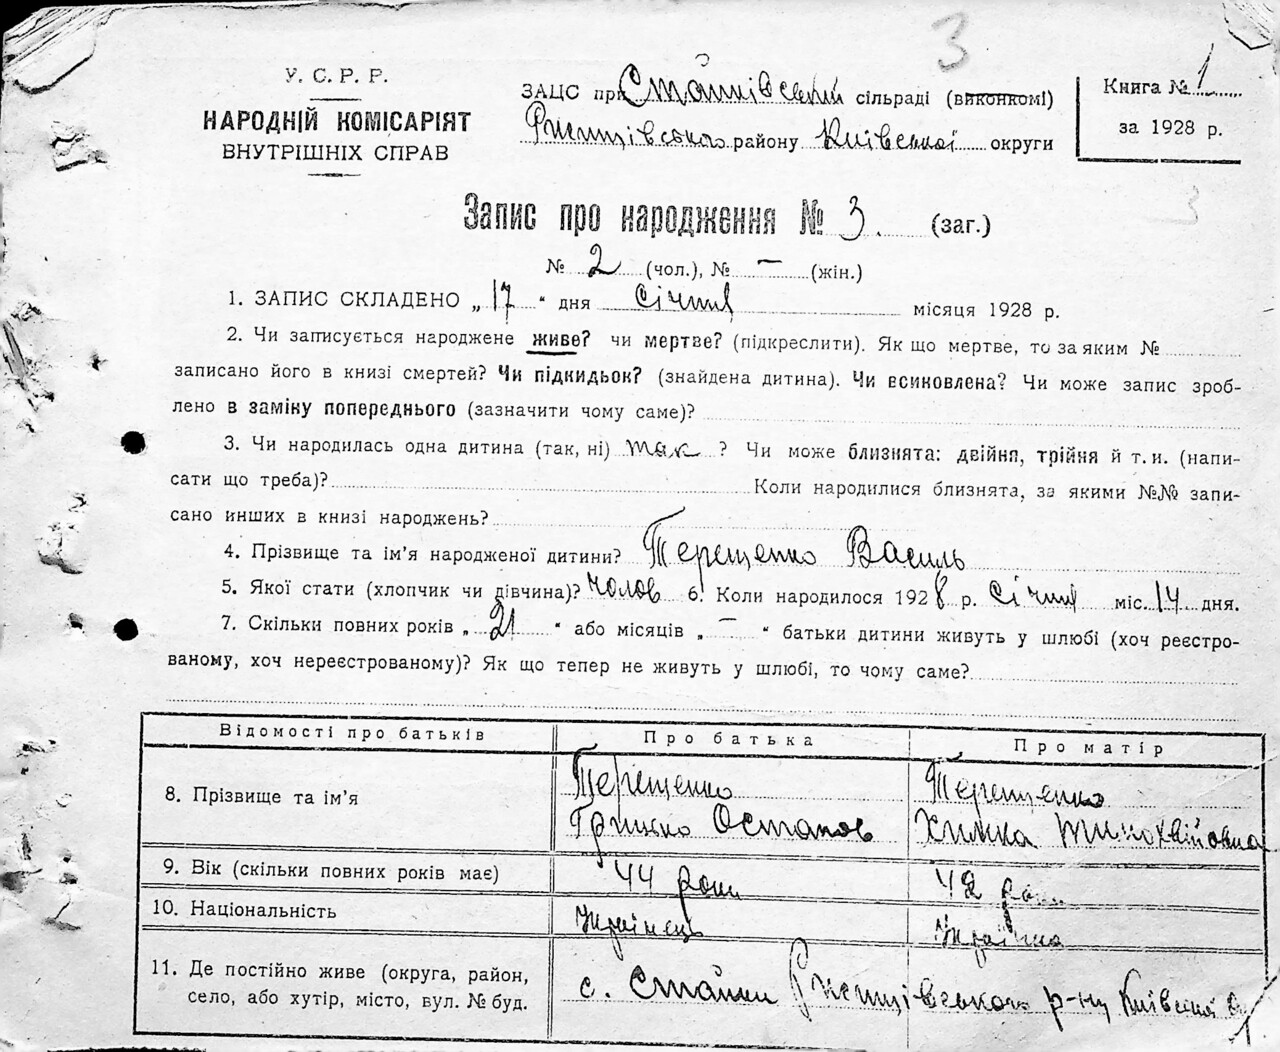 3
У. С. Р. Р.
НАРОДНІЙ КОМІСАРІЯТ
ВНУТРІШНІХ СПРАВ
ЗАЦС при Стайківській сільраді (виконкомі)
Ржищівського району Київської округи
Книга № 1
за 1928 р.
3
Запис про народження № 3. (заг.)
№ 2 (чол.), № — (жін.)
1. ЗАПИС СКЛАДЕНО „ 17 “ дня січня місяця 1928 р.
2. Чи записується народжене живе? чи мертве? (підкреслити). Як що мертве, то за яким №
записано його в книзі смертей? Чи підкидьок? (знайдена дитина). Чи всиновлена? Чи може запис зроб-
лено в заміну попереднього (зазначити чому саме)?
3. Чи народилась одна дитина (так, ні) так ? Чи може близнята: двійня, трійня й т. и. (напи-
сати що треба)? Коли народилися близнята, за якими №№ запи-
сано инших в книзі народжень?
4. Прізвище та ім’я народженої дитини? Терещенко Василь
5. Якої стати (хлопчик чи дівчина)? чолов 6. Коли народилося 1928 р. січня міс. 14 дня.
7. Скільки повних років „ 21 “ або місяців „ — “ батьки дитини живуть у шлюбі (хоч реєстро-
ваному, хоч нереєстрованому)? Як що тепер не живуть у шлюбі, то чому саме?
Відомості про батьків Про батька Про матір
8. Прізвище та ім’я Терещенко Терещенко
Грицько Остапов Химка Тимохвійовна
9. Вік (скільки повних років має) 44 роки 42 роки
10. Національність Українець Українка
11. Де постійно живе (округа, район,
село, або хутір, місто, вул. № буд. с. Стайки Ржищівського р-ну Київської